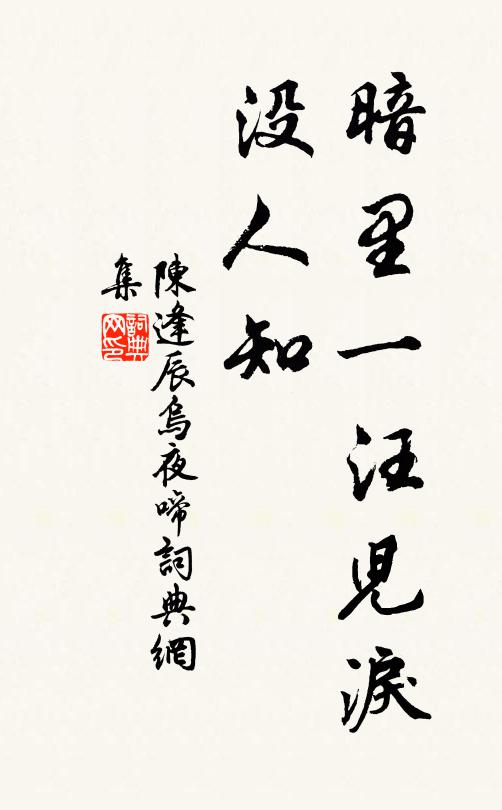 暗里一汪児淚
没人知
陳逢辰烏夜啼詞典網
集
詞典
网印